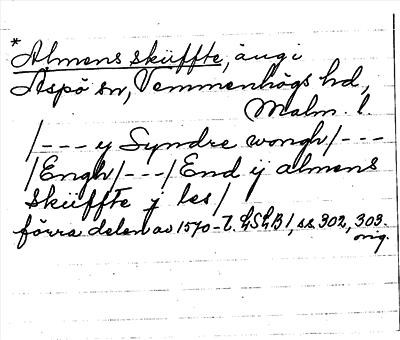 *Almens sküffte, äng i
Äspö sn, Vemmenhögs hd,
Malm. l.
/--- y Syndre wongh/---
/Engh/---/End ÿ almens
sküffte y les/
förra delen av 1570-t. LSLB1, ss 302, 303.
orig.